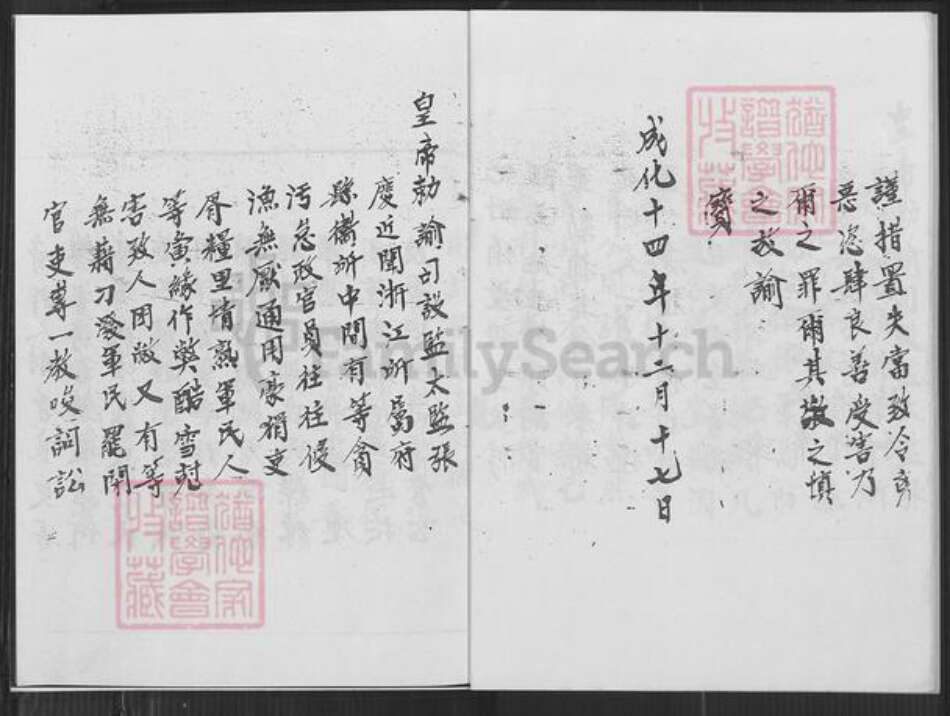 謹措置失當致令良
惡恣肆良善受害乃
爾之罪爾其欽之慎
之故諭
寶
成化十四年十二月十七日
皇帝勅諭司設監太監張
慶近聞浙江所屬府
縣衛所中間有等貪
污怠政官員往往侵
漁無厭通用豪猾吏
胥糧里情熟軍民人
等夤緣作弊酷
害致人困敝又有等
無藉刁潑軍民罷閑
官吏等一教唆詞訟
FamilySearch
譜學會
收藏
譜學會
收藏